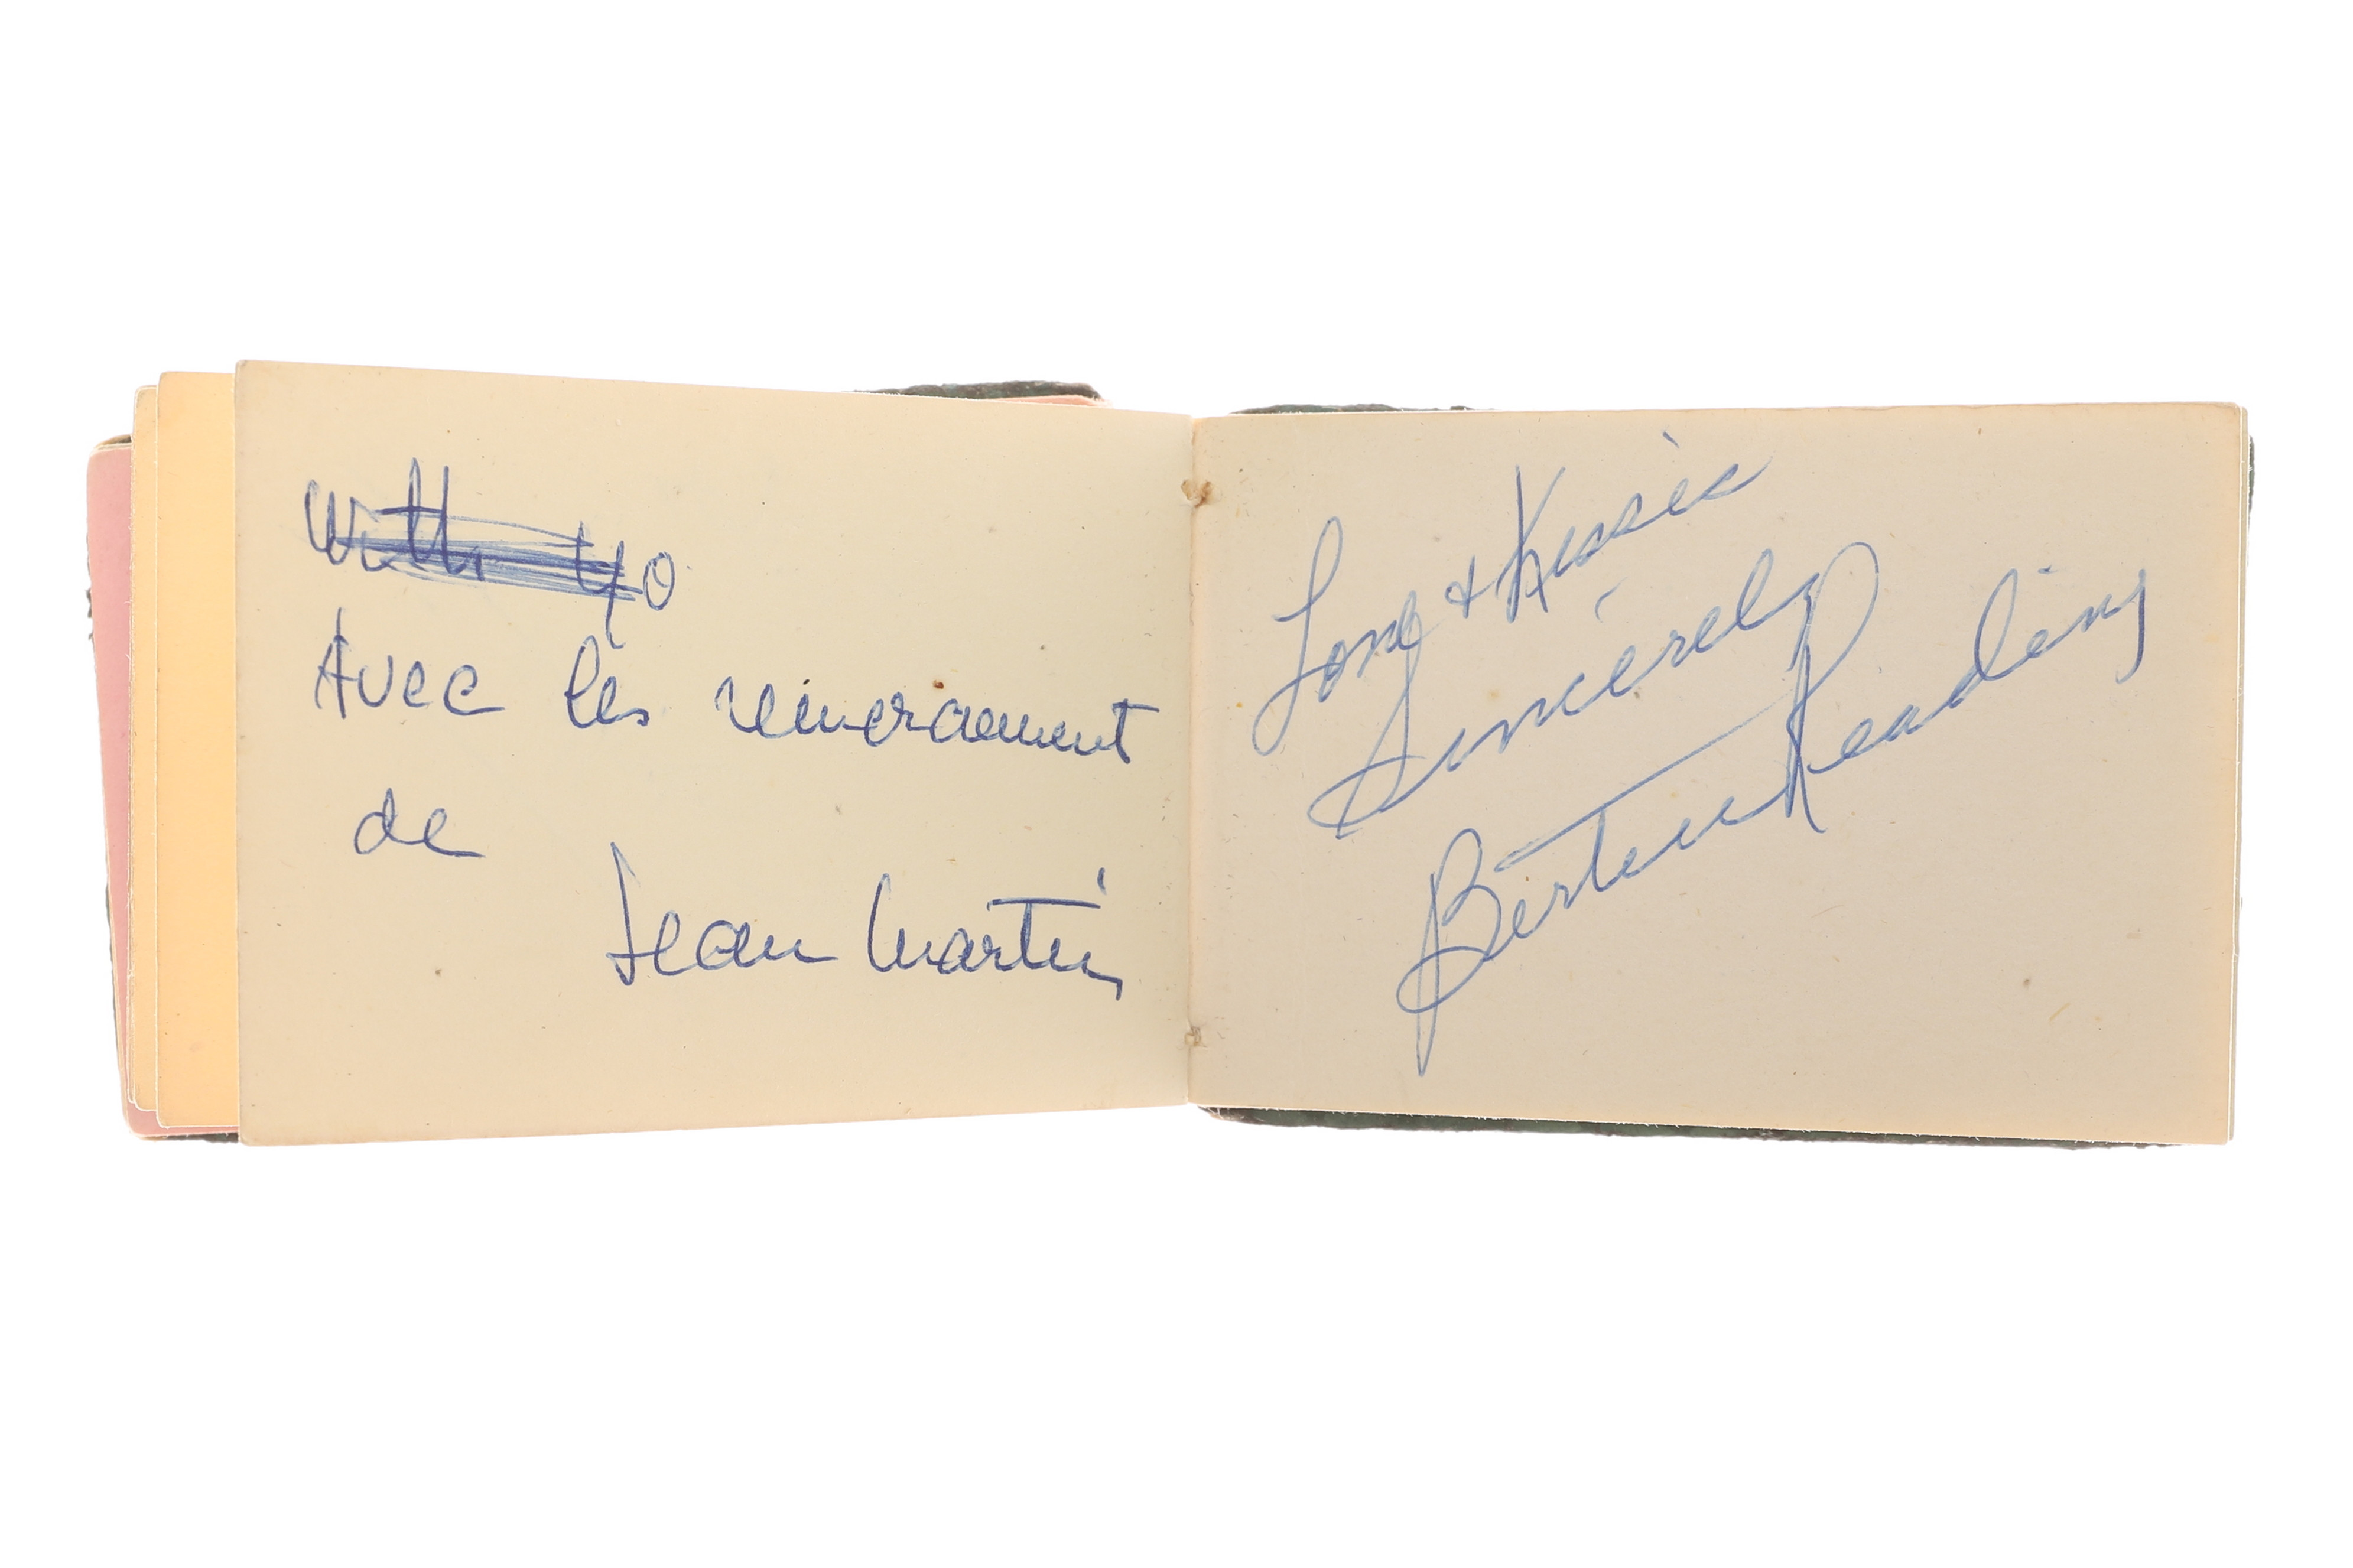 with yo
Avec les remerciement
de
Jean Martin
Love & Kissie
Sincerely
Bertice Reading